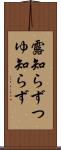 露知らずつ
ゆ知らず